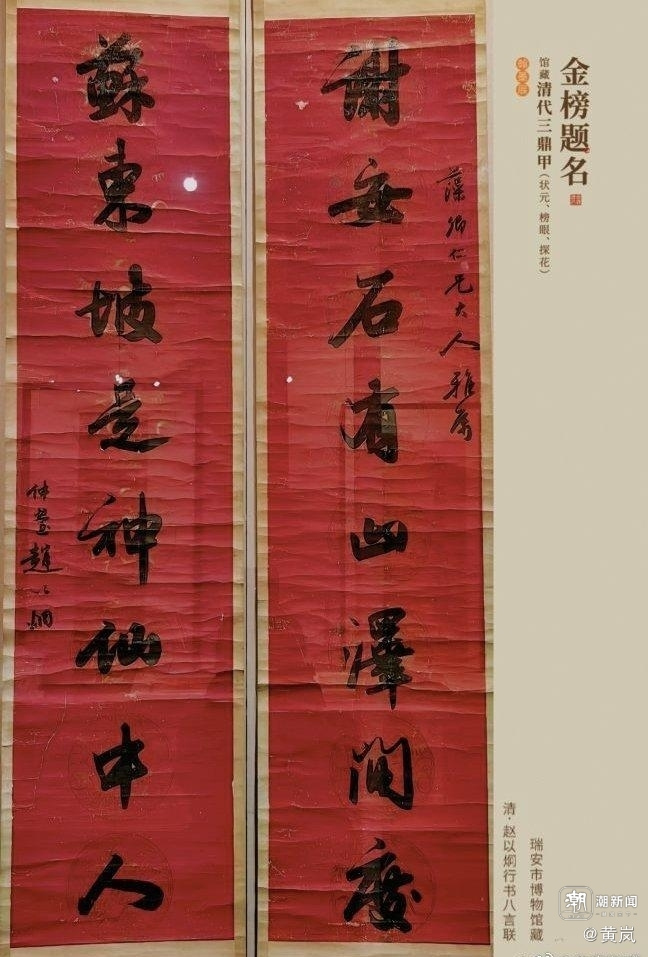 金榜题名
馆藏清代三鼎甲（状元、榜眼、探花）
藻卿仁兄大人雅属
謝安石有山澤間度
蘇東坡是神仙中人
仲瑩趙以烱
瑞安市博物馆藏
清·赵以炯行书八言联
潮 潮新闻
@黄岚